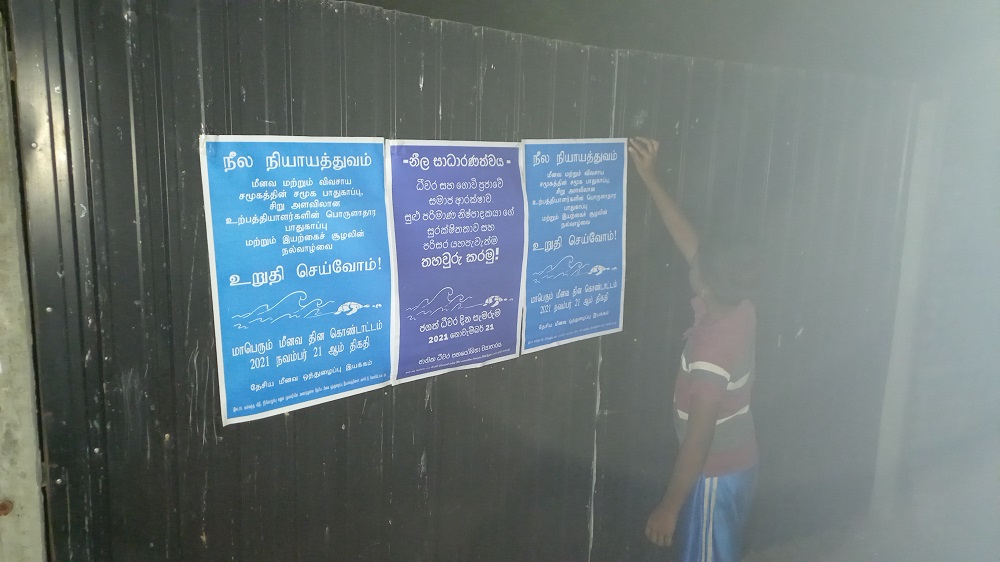 நீல நியாயத்துவம்
மீனவ மற்றும் விவசாய
சமூகத்தின் சமூக பாதுகாப்பு,
சிறு அளவிலான
உற்பத்தியாளர்களின் பொருளாதார
பாதுகாப்பு
மற்றும் இயற்கைச் சூழலின்
நல்வாழ்வை
உறுதி செய்வோம்!
மாபெரும் மீனவ தின கொண்டாட்டம்
2021 நவம்பர் 21 ஆம் திகதி
தேசிய மீனவ ஒத்துழைப்பு இயக்கம்
-නීල සාධාරණත්වය-
ධීවර සහ ගොවි ප්‍රජාවේ
සමාජ ආරක්ෂාව,
සුළු පරිමාණ නිෂ්පාදකයා ගේ
සුරක්ෂිතතාව සහ
පරිසර යහපැවැත්ම
තහවුරු කරමු!
ජගත් ධීවර දින සැමරුම
2021 නොවැම්බර් 21
ජාතික ධීවර සහයෝගිතා ව්‍යාපාරය
நீல நியாயத்துவம்
மீனவ மற்றும் விவசாய
சமூகத்தின் சமூக பாதுகாப்பு,
சிறு அளவிலான
உற்பத்தியாளர்களின் பொருளாதார
பாதுகாப்பு
மற்றும் இயற்கைச் சூழலின்
நல்வாழ்வை
உறுதி செய்வோம்!
மாபெரும் மீனவ தின கொண்டாட்டம்
2021 நவம்பர் 21 ஆம் திகதி
தேசிய மீனவ ஒத்துழைப்பு இயக்கம்